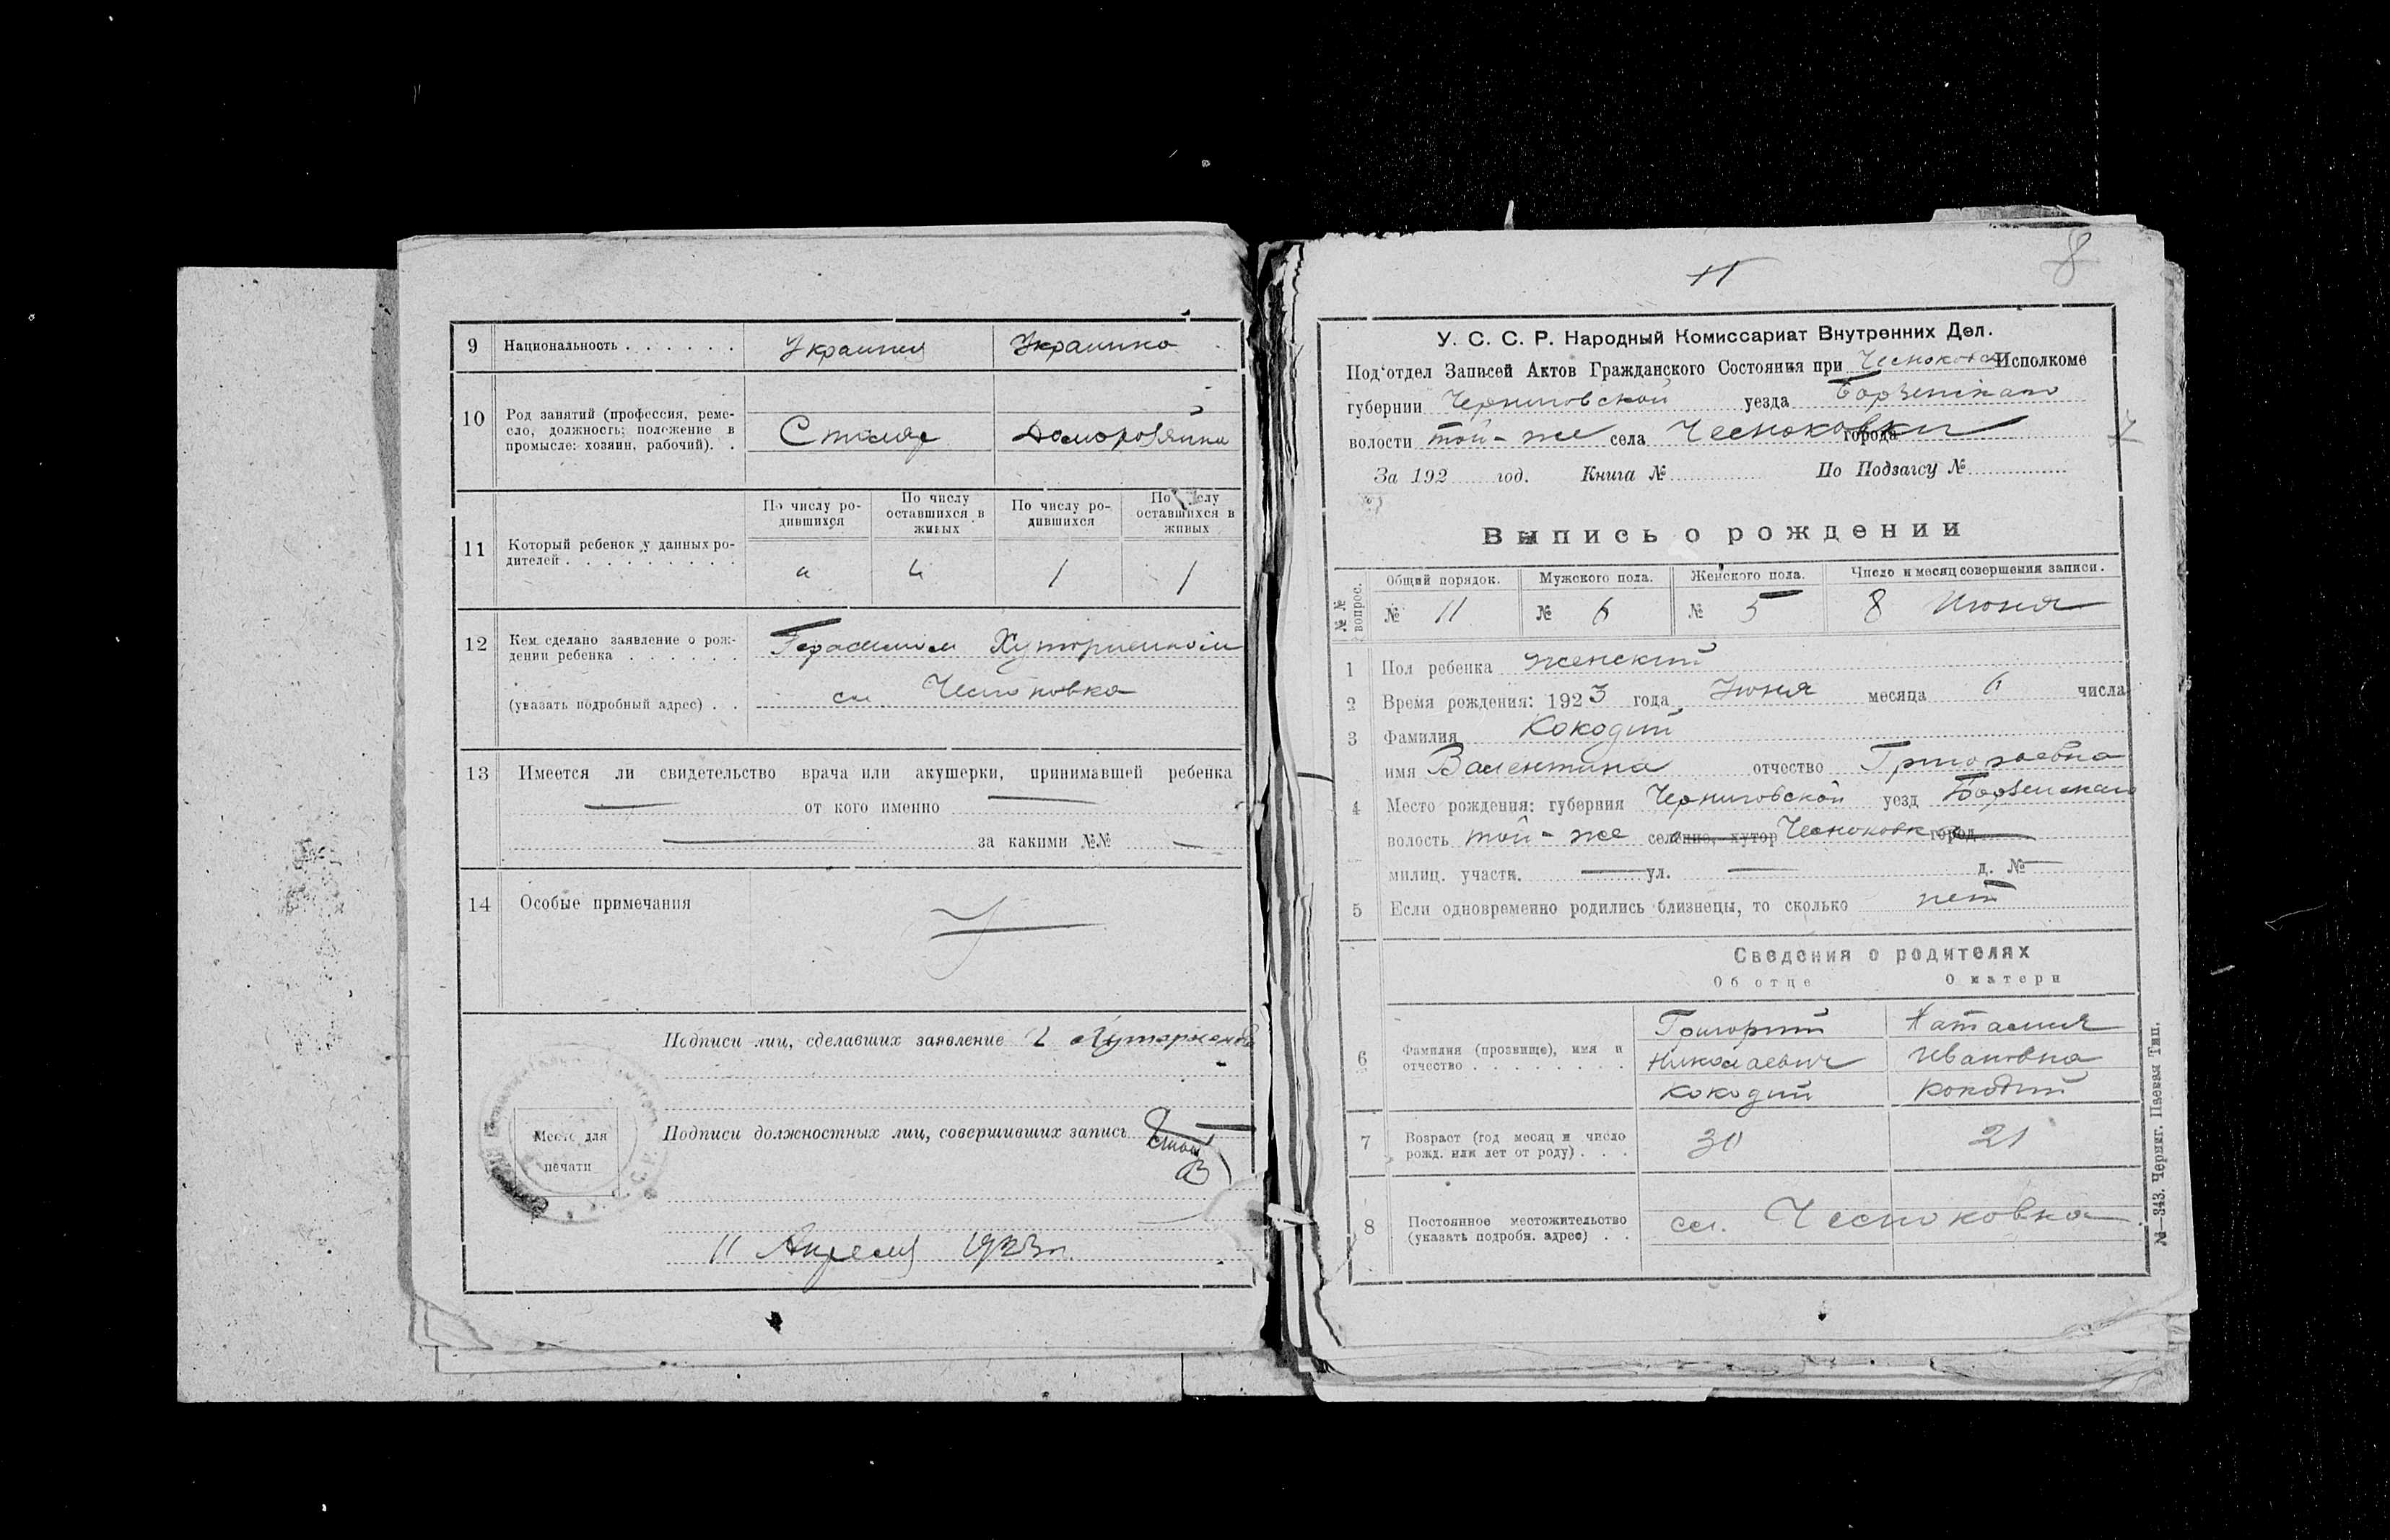 9 Национальность . . . . . . Украинец Украинка
10 Род занятий (профессия, реме-
сло, должность; положение в
промысле: хозяин, рабочий). .
Столяр Домохозяйка
11 Который ребенок у данных ро-
дителей . . . . . . . . .
По числу ро-
дившихся
По числу
оставшихся в
живых
По числу ро-
дившихся
оставшихся в
живых
4 4 1 1
12 Кем сделано заявление о рож-
дении ребенка . . . . . .
Герасимом Хуторненком
(указать подробный адрес) . .
сл. Чесноковка
13 Имеется ли свидетельство врача или акушерки, принимавшей ребенка
— от кого именно —
— за какими №№ —
14 Особые примечания
Подписи лиц, сделавших заявление
Место для
печати
Подписи должностных лиц, совершивших запись
11 Апреля 1923 г.
11
8
У. С. С. Р. Народный Комиссариат Внутренних Дел.
Под'отдел Записей Актов Гражданского Состояния при Чесноковск Исполкоме
губернии Черниговской уезда Борзенского
волости той-же села Чесноковки города
За 192 год. Книга № По Подзагсу №
Выпись о рождении
№№ вопрос.
Общий порядок. Мужского пола. Женского пола. Число и месяц совершения записи.
№ 11 № 6 № 5 8 Июня
1 Пол ребенка женский
2 Время рождения: 1923 года Июня месяца 6 числа
3 Фамилия Кокодий
имя Валентина отчество Григорьевна
4 Место рождения: губерния Черниговской уезд Борзенскаго
волость той-же селение, хутор Чесноковка город
милиц. участк. — ул. — д. № —
5 Если одновременно родились близнецы, то сколько нет
Сведения о родителях
Об отце О матери
6 Фамилия (прозвище), имя и
отчество . . . . . . . .
Григорий Наталия
Николаевич Ивановна
Кокодий Кокодий
7 Возраст (год месяц и число
рожд. или лет от роду) . . .
30 21
8 Постоянное местожительство
(указать подробн. адрес) . .
сл. Чесноковка
№—343. Черниг. Паевая Тип.